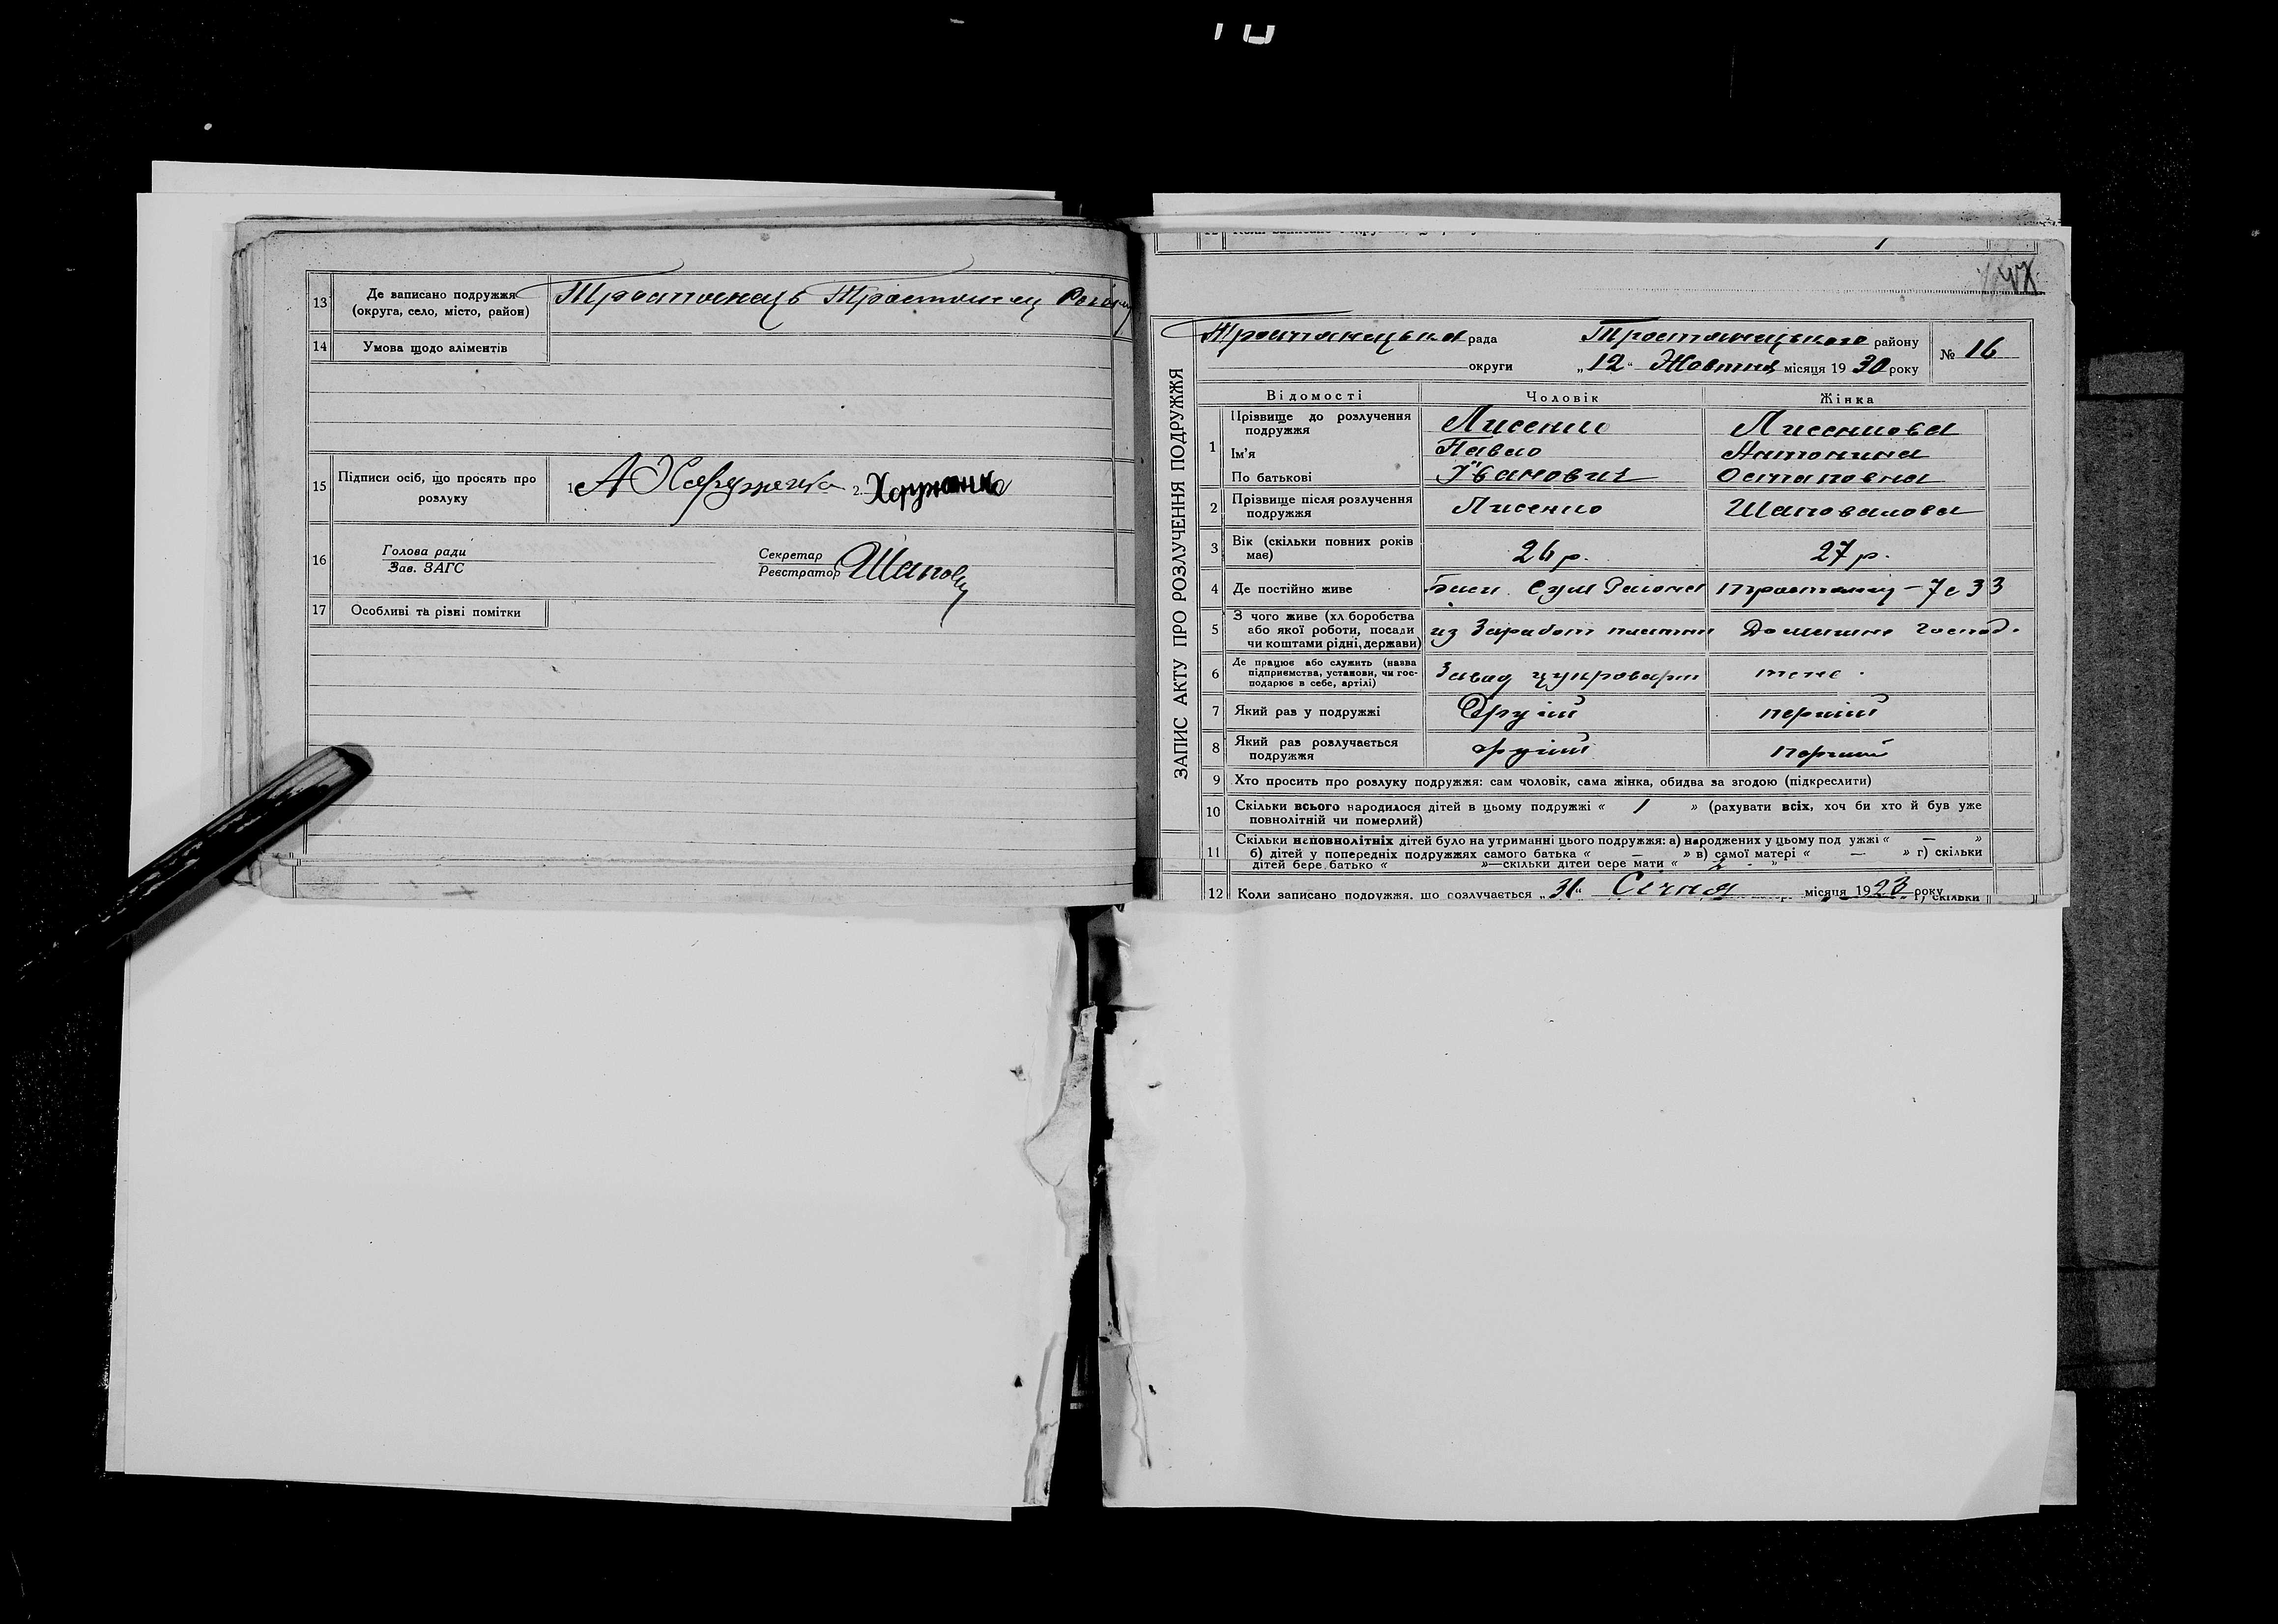 13 Де записано подружжя (округа, село, місто, район) Тростянець Тростянец Району
14 Умова щодо аліментів
15 Підписи осіб, що просять про розлуку 1. А Харуженко 2. Харуженко
16 Голова ради Зав. ЗАГС Секретар Реєстратор Шапов
17 Особливі та різні помітки
ЗАПИС АКТУ ПРО РОЗЛУЧЕННЯ ПОДРУЖЖЯ
Тростянецька рада Тростянецького району № 16
округи „12“ Жовтня місяця 1930 року
Відомості Чоловік Жінка
1 Прізвище до розлучення подружжя Лисенко Лисенкова
Ім'я Павло Антонина
По батькові Іванович Остаповна
2 Прізвище після розлучення подружжя Лисенко Шаповалова
3 Вік (скільки повних років має) 26 р. 27 р.
4 Де постійно живе Сум Района Тростянец – 33
5 З чого живе (хліборобства або якої роботи, посади чи коштами рідні, держави) из Заработ платни Домашнє господ.
6 Де працює або служить (назва підприємства, установи, чи господарює в себе, артілі) Завод цукроварн теж.
7 Який раз у подружжі Другий перший
8 Який раз розлучається подружжя другий перший
9 Хто просить про розлуку подружжя: сам чоловік, сама жінка, обидва за згодою (підкреслити)
10 Скільки всього народилося дітей в цьому подружжі « 1 » (рахувати всіх, хоч би хто й був уже
повнолітній чи померлий)
11 Скільки неповнолітніх дітей було на утриманні цього подружжя: а) народжених у цьому под ужжі « — »
б) дітей у попередніх подружжях самого батька « — » в) самої матері « — » г) скільки
дітей бере батько « »—скільки дітей бере мати « »
12 Коли записано подружжя, що розлучається „31“ Січня місяця 1923 року